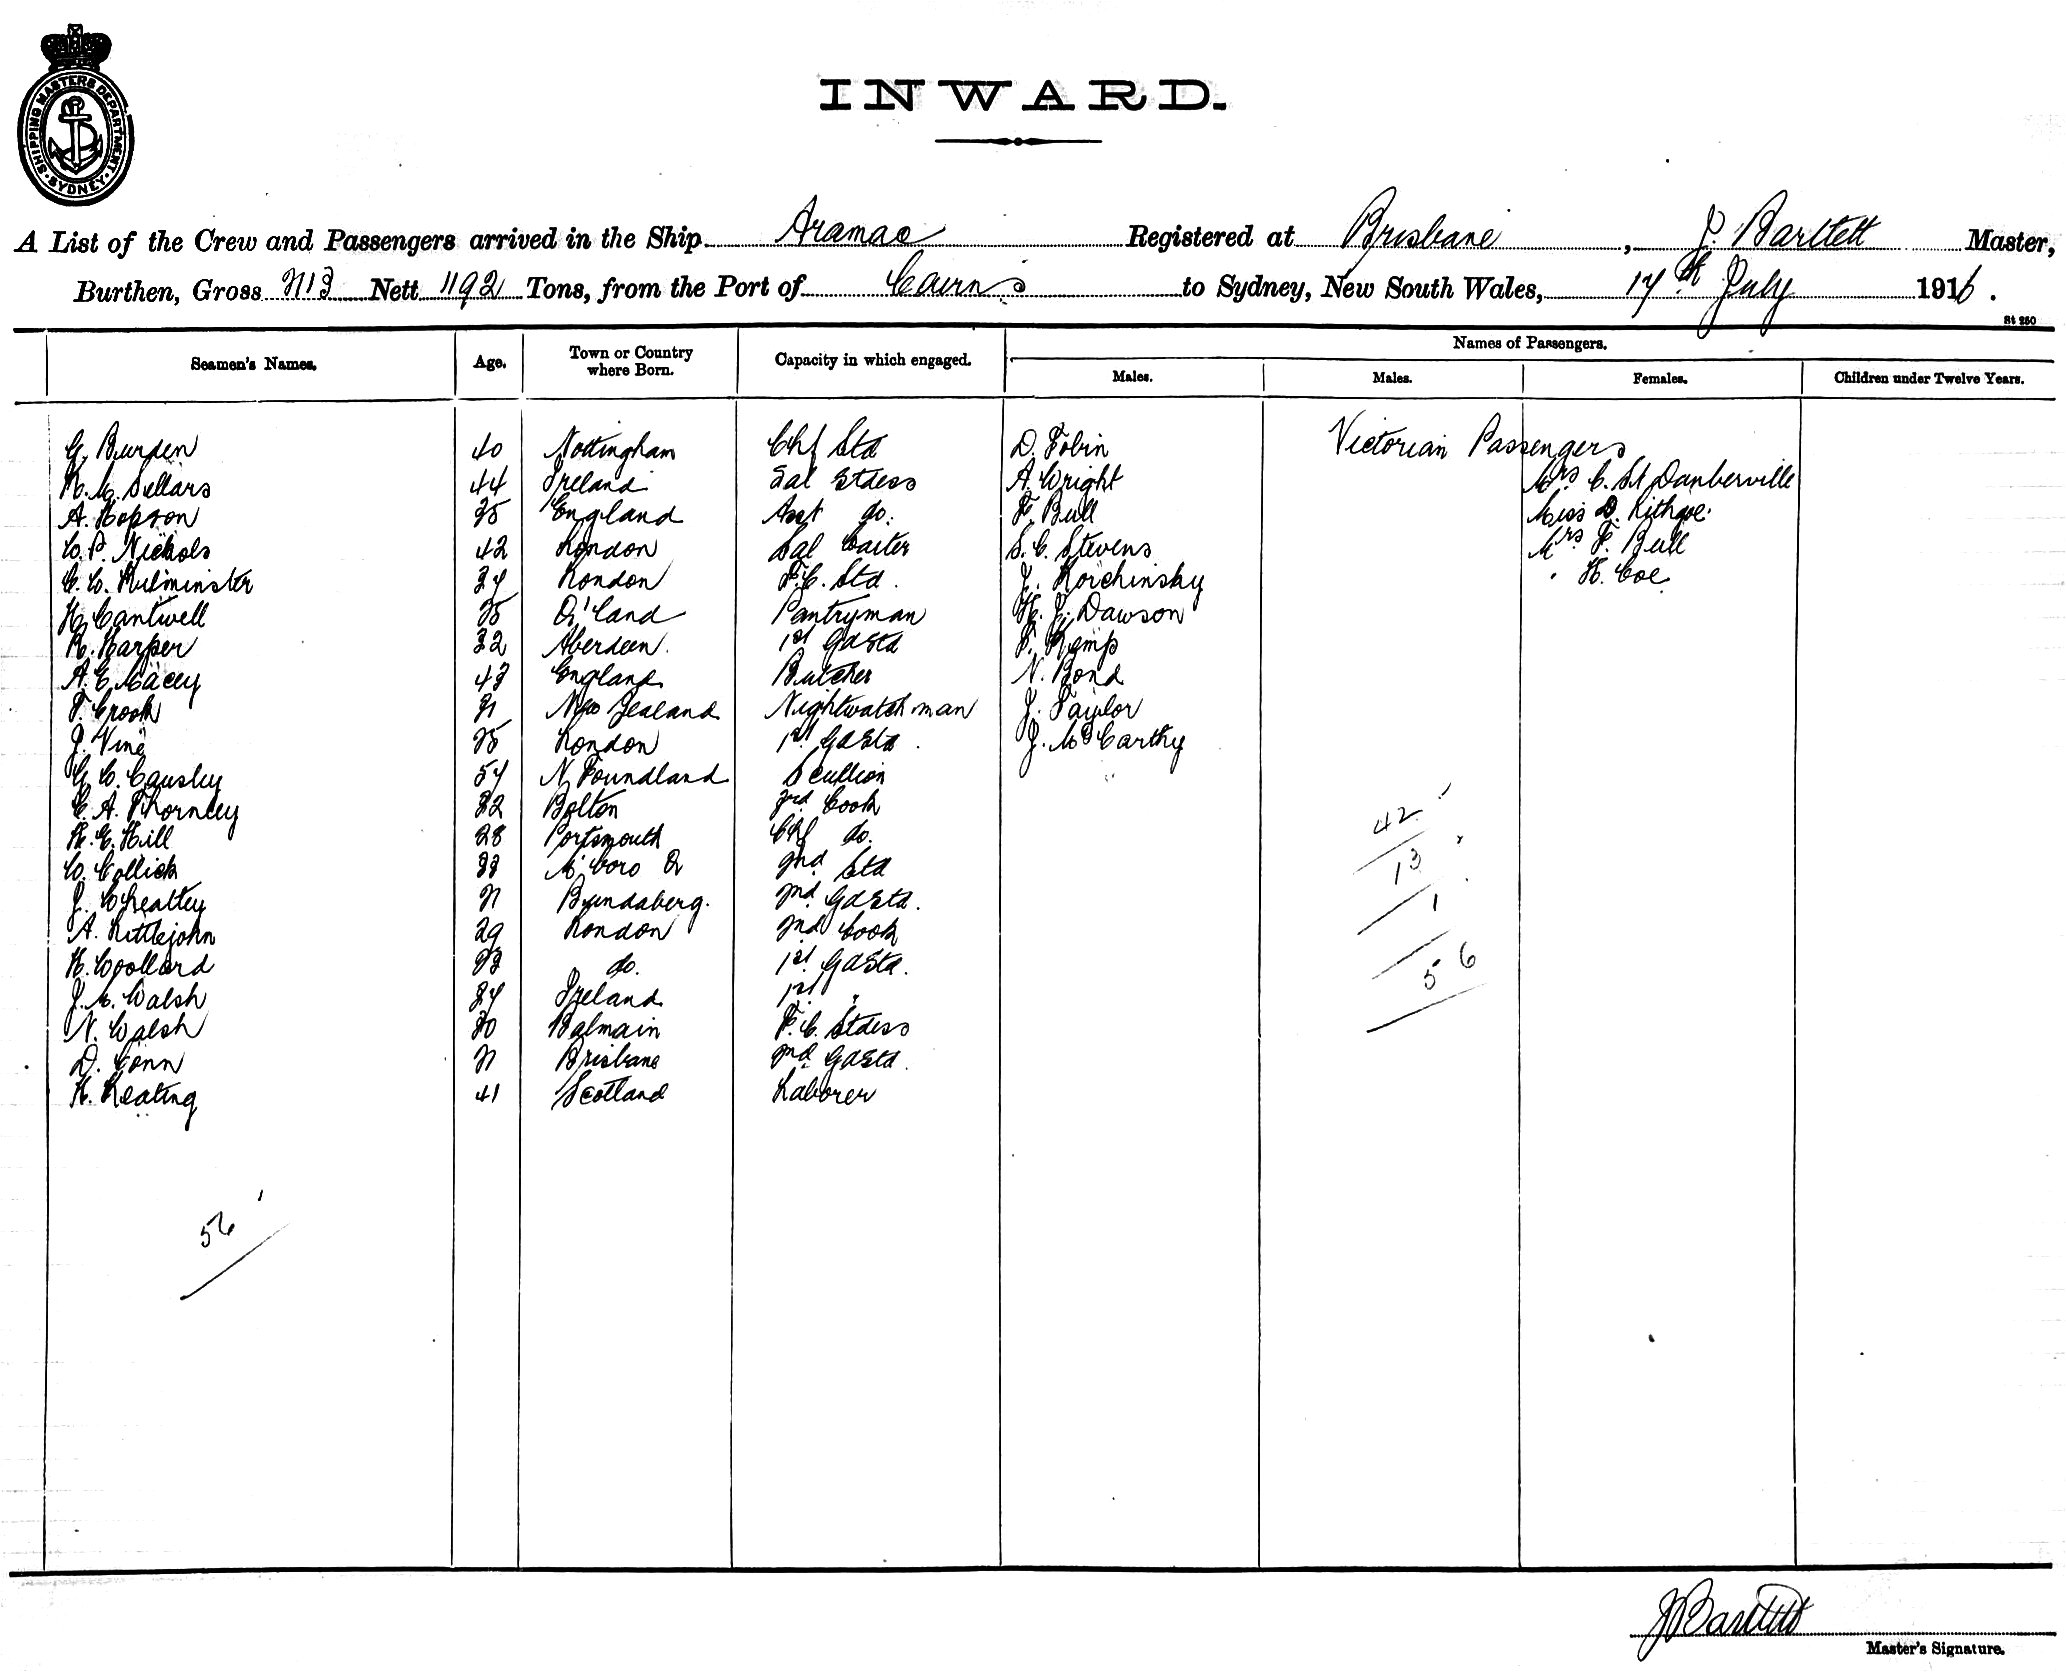 SHIPPING MASTERS DEPARTMENT · SYDNEY ·
INWARD.
A List of the Crew and Passengers arrived in the Ship Aramac Registered at Brisbane, J. Bartlett Master,
Burthen, Gross 2113 Nett 1192 Tons, from the Port of Cairns to Sydney, New South Wales, 17th July 1916.
St 250
Seamen's Names. Age. Town or Country where Born. Capacity in which engaged. Names of Passengers.
Males. Males. Females. Children under Twelve Years.
G. Burden 40 Nottingham Chf Std D. Tobin Victorian Passengers
K. M. Sellars 44 Ireland Sal Stdess A. Wright Mrs C. St Danberville
A. Hopson 25 England Asst do. F. Bull Miss D. Lithgoe
W. P. Nichols 42 London Sal Waiter S. C. Stevens Mrs F. Bull
C. W. Kulminster 37 London F.C. Std. J. Korchinsky " H. Coe
H. Cantwell 25 Q'land Pantryman H. J. Dawson
R. Harper 32 Aberdeen. 1st GdStd F. Kemp
A. E. Macey 43 England Butcher N. Bond
F. Crook 21 New Zealand Nightwatchman J. Taylor
J. Vine 25 London 1st GdStd. J. McCarthy
G. W. Causley 57 N Foundland Scullion
C. A. Thorncey 32 Bolton 3rd Cook
H. E. Hill 28 Portsmouth Chf do.
W. Collick 33 M'boro Q 2nd Std
J. Wheatley 21 Bundaberg. 2nd GdStd.
A. Littlejohn 29 London 2nd Cook
H. Woollard 23 do. 1st GdStd.
J. M. Walsh 37 Ireland 1st "
N. Walsh 30 Balmain F.C. Stdess
D. Conn 21 Brisbane 2nd GdStd.
H. Keating 41 Scotland Laborer
42
13
1
56
56
J Bartlett
Master's Signature.